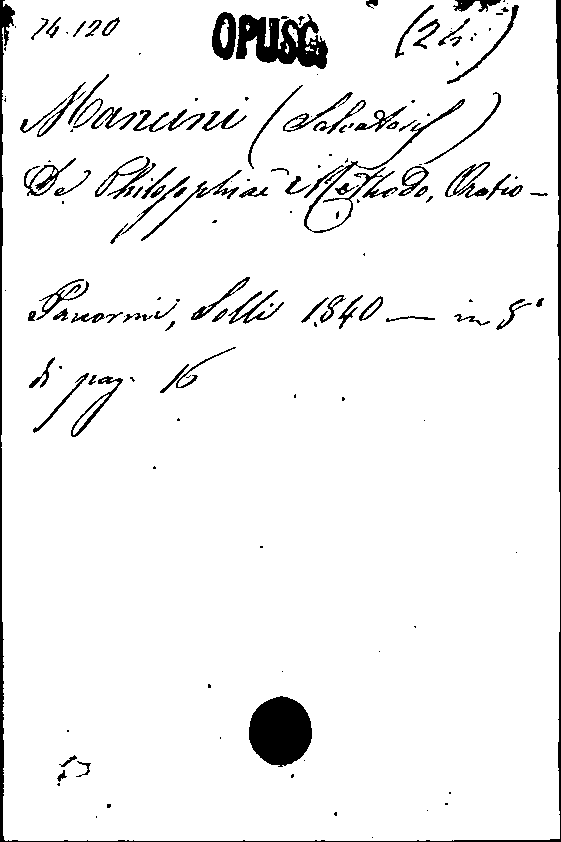 74.120 OPUSC.
Mancini (Salvatoris)
De Philosophiae Methodo, Oratio —
Panormi, Solli 1840 — in 8°
di pag. 16